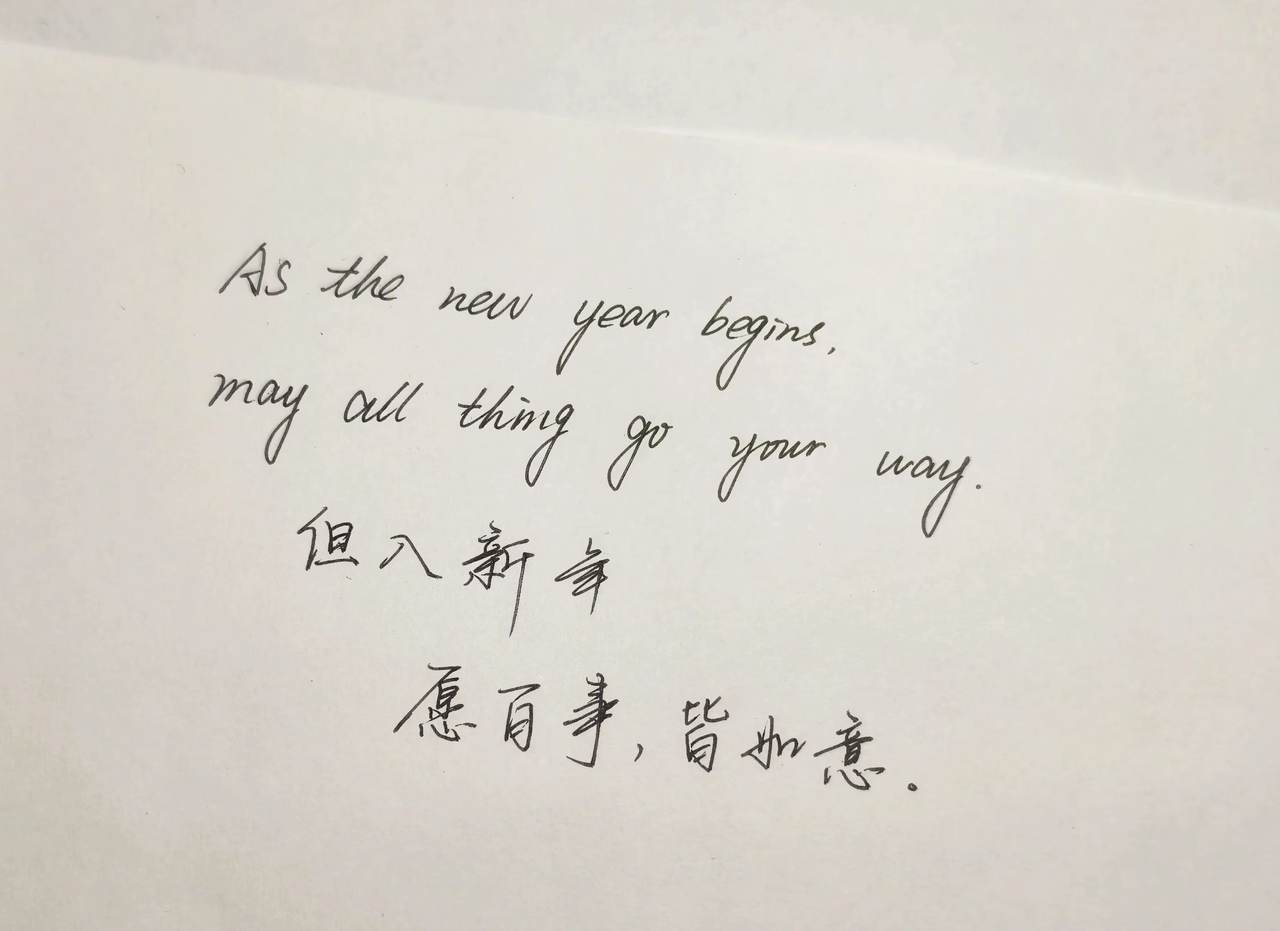 As the new year begins,
may all thing go your way.
但入新年
愿百事,皆如意.